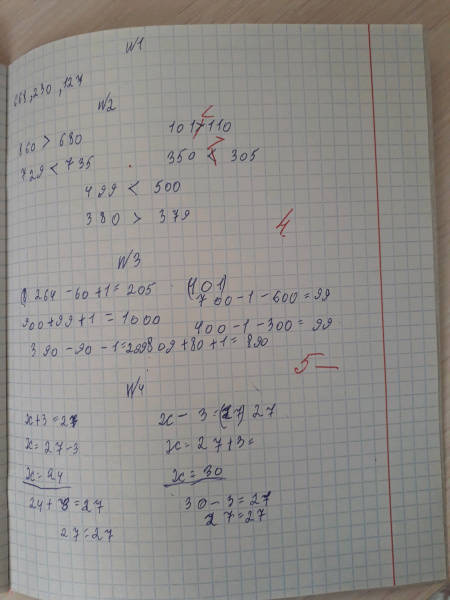 №1
668, 230, 127
№2
860 > 680
101 > 110
<
729 < 735
350 < 305
>
499 < 500
380 > 379
4
№3
264 - 60 + 1 = 205
(101)
700 - 1 - 600 = 99
900 + 99 + 1 = 1000
400 - 1 - 300 = 99
390 - 90 - 1 = 299
809 + 80 + 1 = 890
5-
№4
x + 3 = 27
x - 3 = (27) 27
x = 27 - 3
x = 27 + 3 =
x = 24
x = 30
24 + 3 = 27
30 - 3 = 27
27 = 27
27 = 27